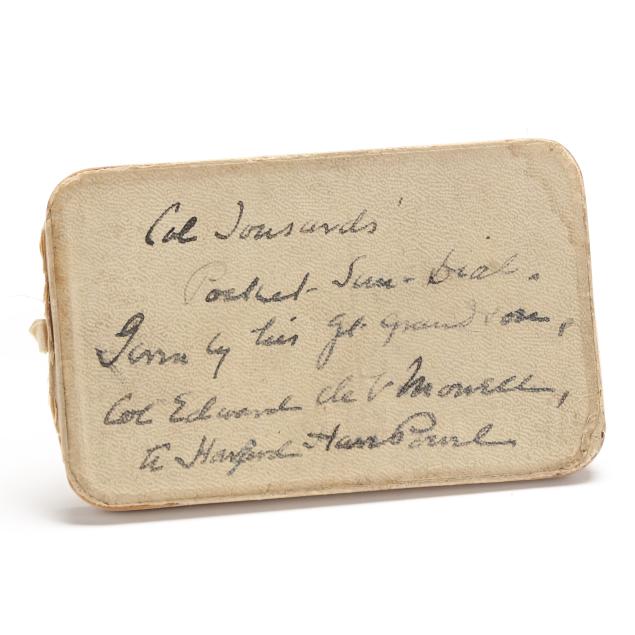 Col Tousards'
Pocket-Sun-Dial.
Given by his gt grandson,
Col Edward de V Morrell,
to Harford Hare Powel